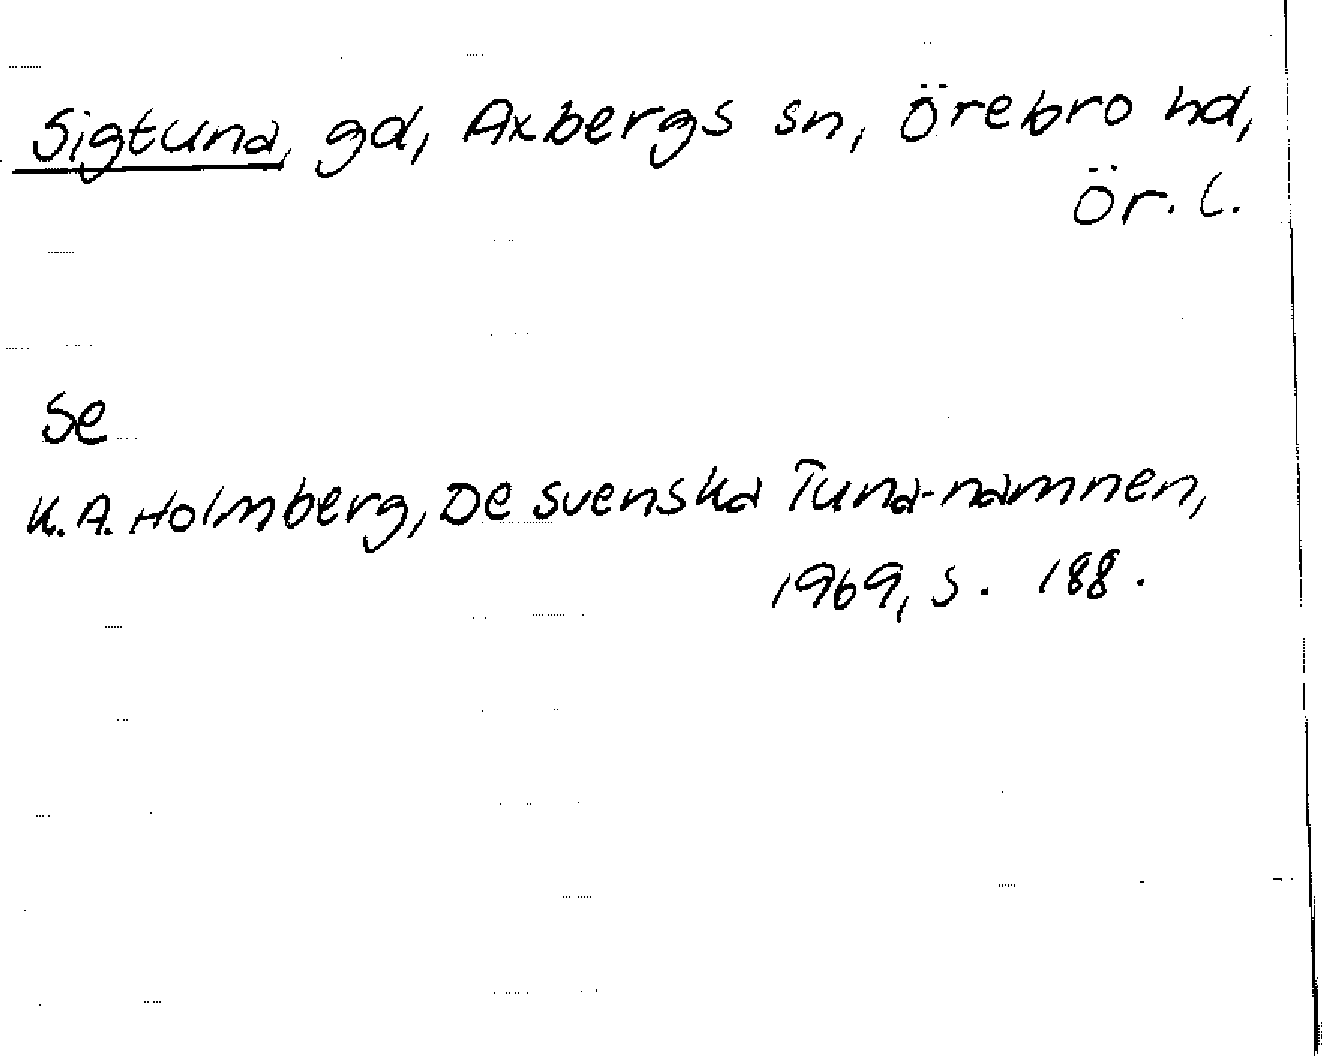 Sigtuna, gd, Axbergs sn, Örebro hd,
Ör. l.
Se
K.A. Holmberg, De svenska Tuna-namnen,
1969, s. 188.